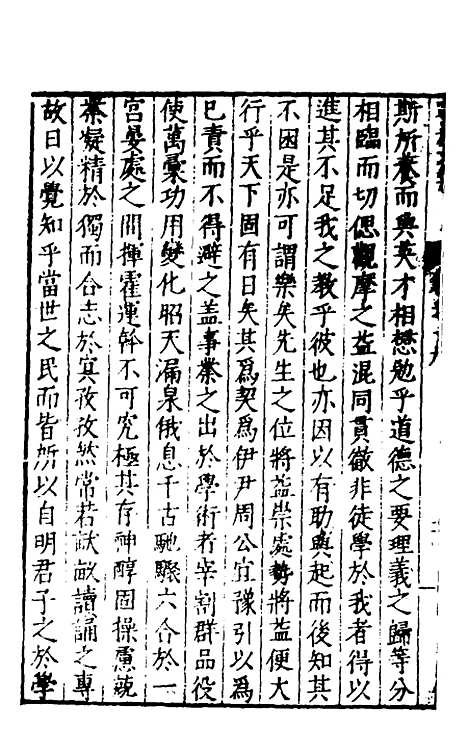 斯所養而與英才相懋勉乎道德之要理義之歸等分
相臨而切偲觀摩之益混同貫徹非徒學於我者得以
進其不足我之教乎彼也亦因以有助與起而後知其
不困是亦可謂樂矣先生之位將益崇處勢將益便大
行乎天下固有日矣其為契為伊尹周公宜豫引以為
已責而不得避之盖事業之出於學術者宰割群品役
使萬彙功用變化昭天漏泉俄息千古馳驟六合於一
宮晏處之間揮霍運斡不可究極其存神醇固操慮兢
業凝精於獨而合志於冥孜孜然常若畎畝讀誦之專
故曰以覺知乎當世之民而皆所以自明君子之於學